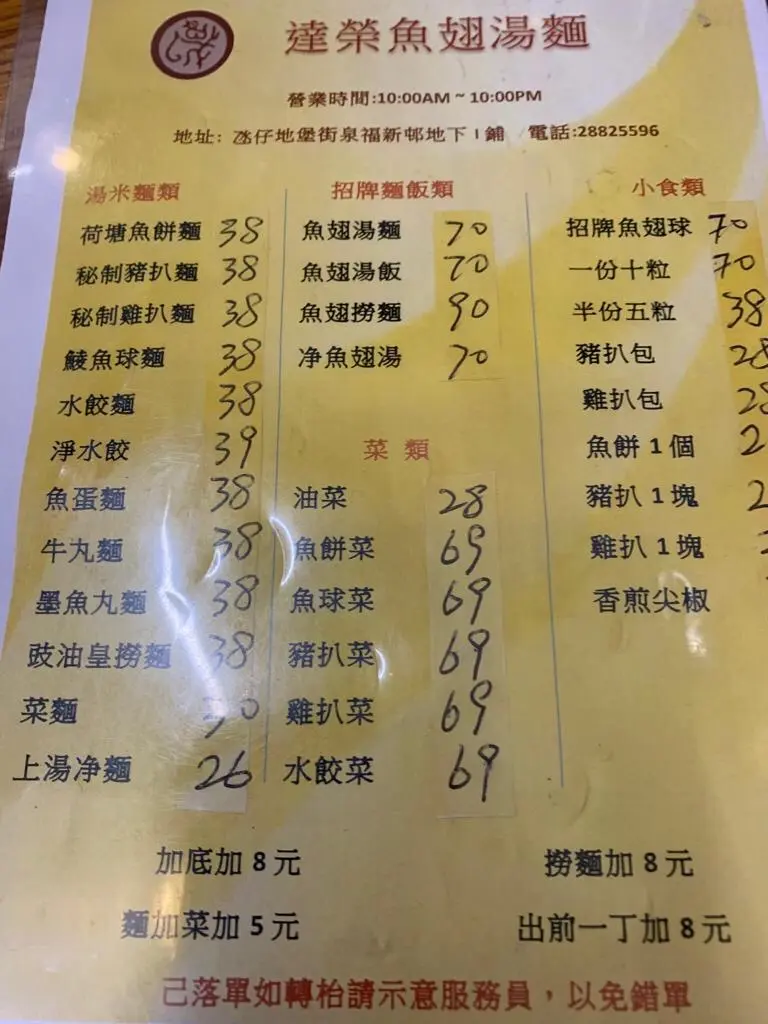 達榮魚翅湯麵
營業時間:10:00AM ~ 10:00PM
地址: 氹仔地堡街泉福新邨地下 I 鋪 電話:28825596
湯米麵類
荷塘魚餅麵 38
秘制豬扒麵 38
秘制雞扒麵 38
鯪魚球麵 38
水餃麵 38
淨水餃 39
魚蛋麵 38
牛丸麵 38
墨魚丸麵 38
豉油皇撈麵 38
菜麵 30
上湯净麵 26
招牌麵飯類
魚翅湯麵 70
魚翅湯飯 70
魚翅撈麵 90
净魚翅湯 70
菜 類
油菜 28
魚餅菜 69
魚球菜 69
豬扒菜 69
雞扒菜 69
水餃菜 69
小食類
招牌魚翅球 70
一份十粒 70
半份五粒 38
豬扒包 28
雞扒包 28
魚餅 1 個
豬扒 1 塊
雞扒 1 塊
香煎尖椒
加底加 8 元
撈麵加 8 元
麵加菜加 5 元
出前一丁加 8 元
己落單如轉枱請示意服務員，以免錯單